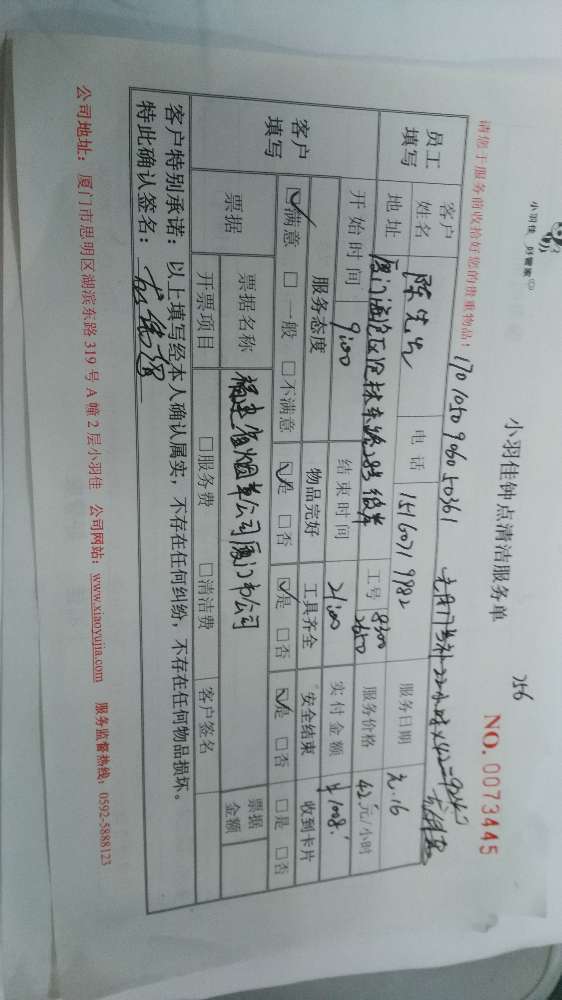 小羽佳 好管家
小羽佳钟点清洁服务单
256
NO. 0073445
请您于服务前收拾好您的贵重物品!
员工填写
客户姓名 陈先生 电话 15160719982 服务日期
地址 工号 8300 服务价格 42元/小时
开始时间 9:00 结束时间 21:00 实付金额 ¥1008.
客户填写
服务态度 物品完好 工具齐全 安全结束 收到卡片
☑满意 □一般 □不满意 ☑是 □否 ☑是 □否 ☑是 □否 □是 □否
票据 票据名称 福建省烟草公司厦门市公司 票据金额
开票项目 □服务费 □清洁费 客户签名
客户特别承诺:以上填写经本人确认属实,不存在任何纠纷,不存在任何物品损坏。
特此确认签名:
公司地址:厦门市思明区湖滨东路319号A幢2层小羽佳 公司网站:www.xiaoyujia.com 服务监督热线:0592-5888123